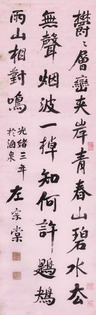 欝〻層巒夾岸青春山碧水去
無聲烟波一棹知何許鶗鴂
兩山相對鳴
光緒三年
於酒泉
左宗棠